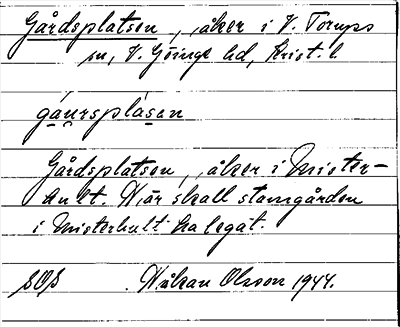 Gårdsplatsen, åker i V. Torups
sn, V. Göinge hd, Krist. l.
gáu̯rsplàsen
Gårdsplatsen, åker i Mister-
hult. Här skall stamgården
i Misterhult ha legat.
SOS Håkan Olsson 1944.